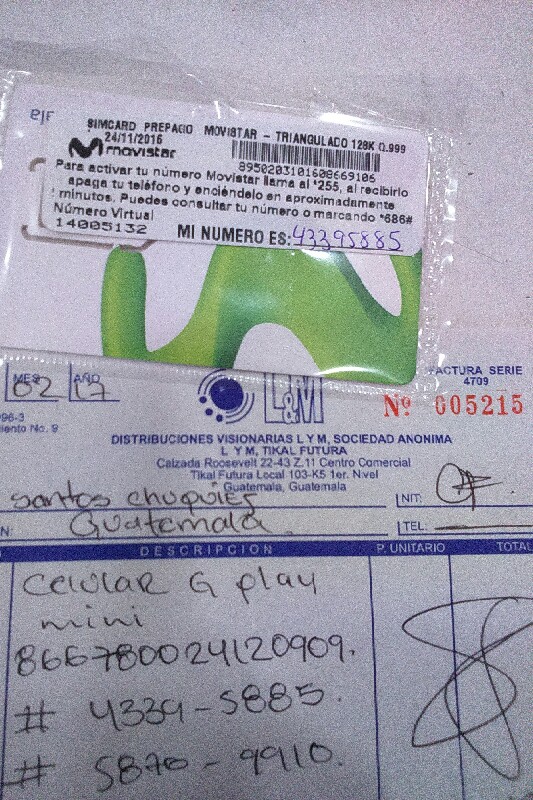 SIMCARD PREPAGO MOVISTAR - TRIANGULADO 128K Q.999
24/11/2016
movistar
8950203101608669106
Para activar tu número Movistar llama al *255, al recibirlo
apaga tu teléfono y enciéndelo en aproximadamente
minutos. Puedes consultar tu número o marcando *686#
Número Virtual
14005132
MI NUMERO ES: 43395885
MES AÑO
02 17
L&M
FACTURA SERIE
4709
Nº 005215
96-3
iento No. 9
DISTRIBUCIONES VISIONARIAS L Y M, SOCIEDAD ANONIMA
L Y M, TIKAL FUTURA
Calzada Roosevelt 22-43 Z.11 Centro Comercial
Tikal Futura Local 103-K5 1er. Nivel
Guatemala, Guatemala
santos chuquiej
NIT: CF
N: Guatemala
TEL:
DESCRIPCION P. UNITARIO TOTAL
Celular G play
mini
866780024120909.
# 4339-5885.
# 5870-9910.